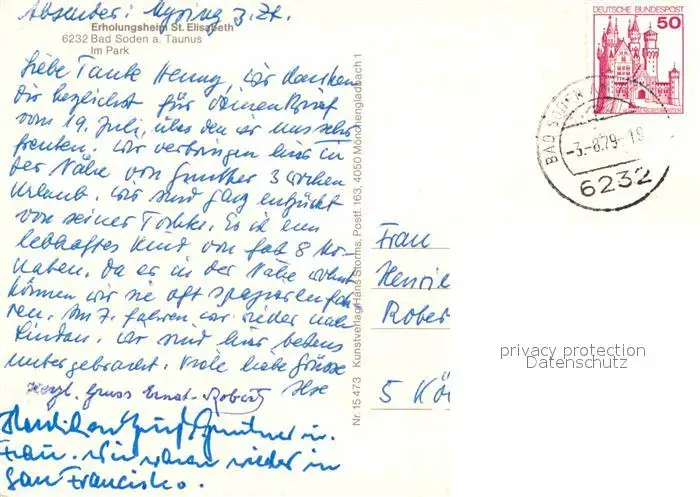 Absender: Myring z. Zt.
Erholungsheim St. Elisabeth
6232 Bad Soden a. Taunus
Im Park
Liebe Tante Henny, wir danken
Dir herzlichst für Deinen Brief
vom 19. Juli, über den wir uns sehr
freuten. Wir verbringen hier in
der Nähe von Gunther 3 Wochen
Urlaub. Wir sind ganz entzückt
von seiner Tochter. Es ist ein
lebhaftes Kind von fast 8 Mo-
naten. Da er in der Nähe wohnt
können wir sie oft spazierenfah
ren. Am 7. fahren wir wieder nach
Lindau. Wir sind hier bestens
untergebracht. Viele liebe Grüsse
Ilse
Herzl. Gruss Ernst-Robert
Herzlichen Gruß Gunther u.
Frau. Wir waren wieder in
San Francisko.
Nr. 15 473 Kunstverlag Hans Storms, Postf. 163, 4050 Mönchengladbach 1
DEUTSCHE BUNDESPOST
50
BAD SODEN
-3.-8.79-18
6232
Frau
Henrie
Rober
5 Kö
privacy protection
Datenschutz